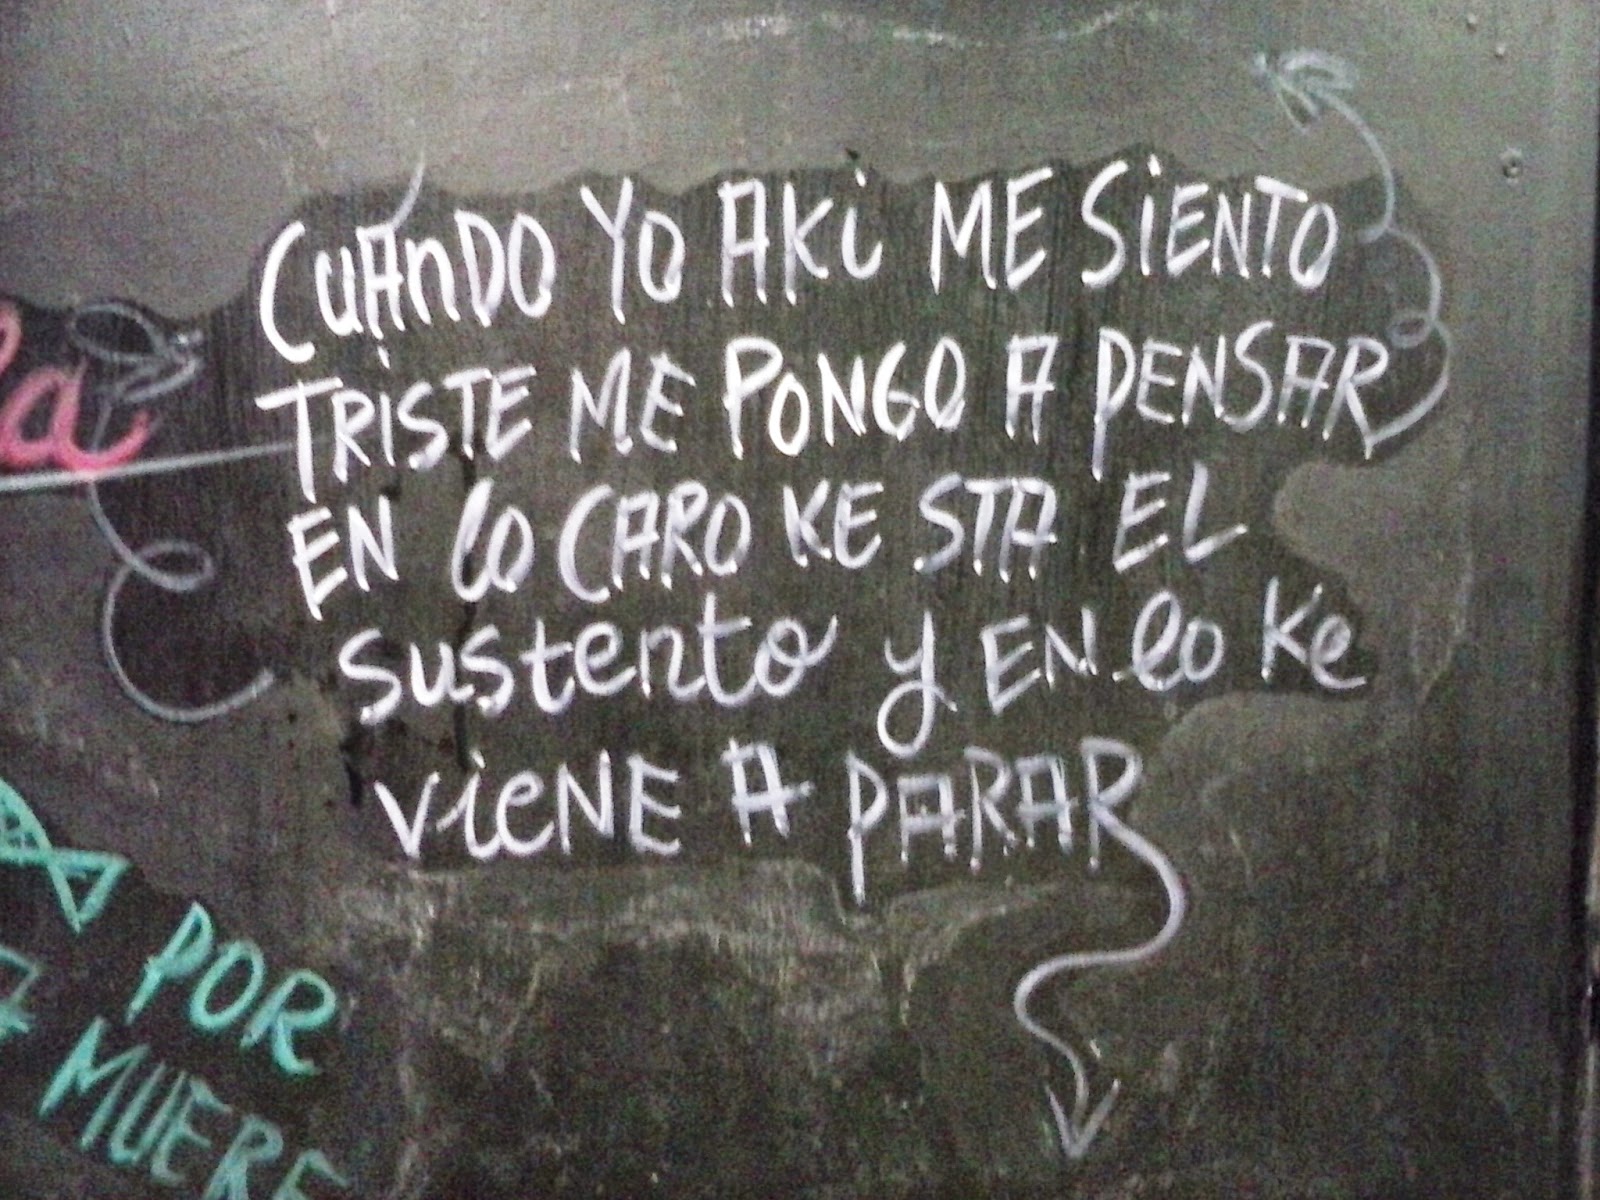 CUANDO YO AKI ME SIENTO
TRISTE ME PONGO A PENSAR
EN lo CARO KE STA EL
sustento y EN lo Ke
VieNE A PARAR
la
POR
MUERE